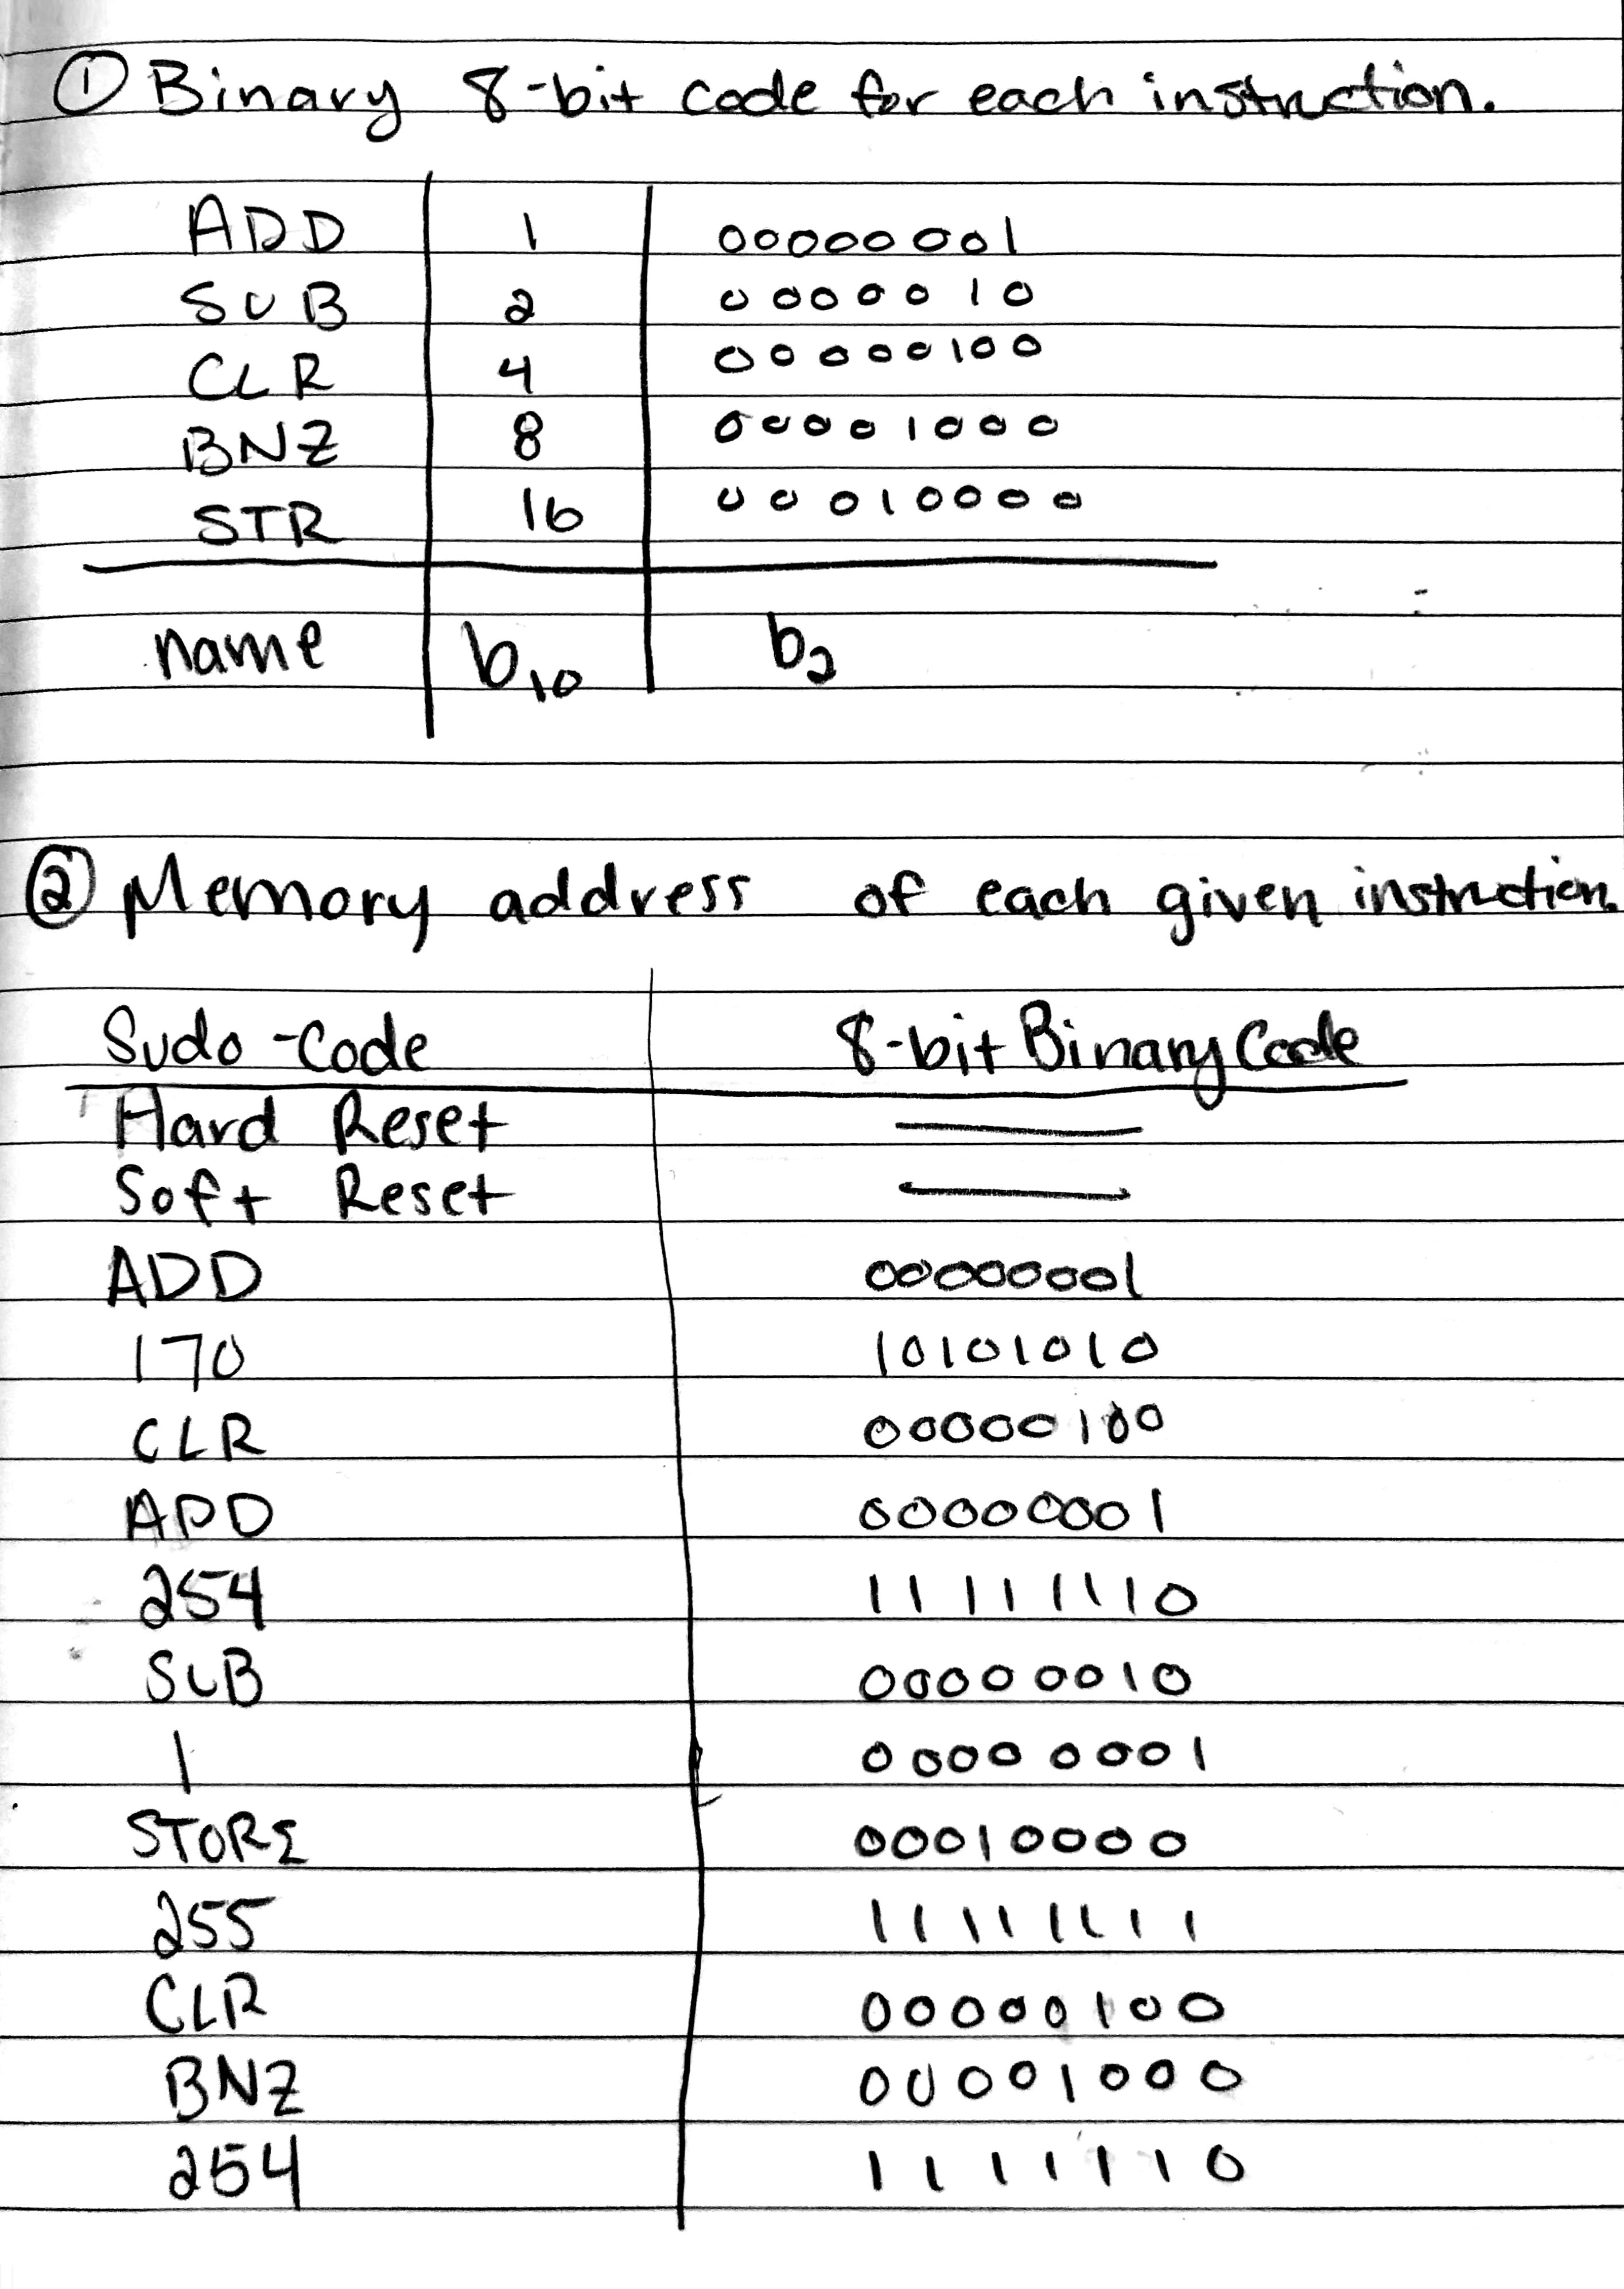 ① Binary 8-bit code for each instruction.
ADD 1 00000001
SUB 2 0000010
CLR 4 00000100
BNZ 8 00001000
STR 16 00010000
name b10 b2
② Memory address of each given instruction.
Sudo-Code 8-bit Binary Code
Hard Reset —
Soft Reset —
ADD 00000001
170 10101010
CLR 00000100
ADD 00000001
254 11111110
SUB 00000010
1 00000001
STORE 00010000
255 11111111
CLR 00000100
BNZ 00001000
254 1111110